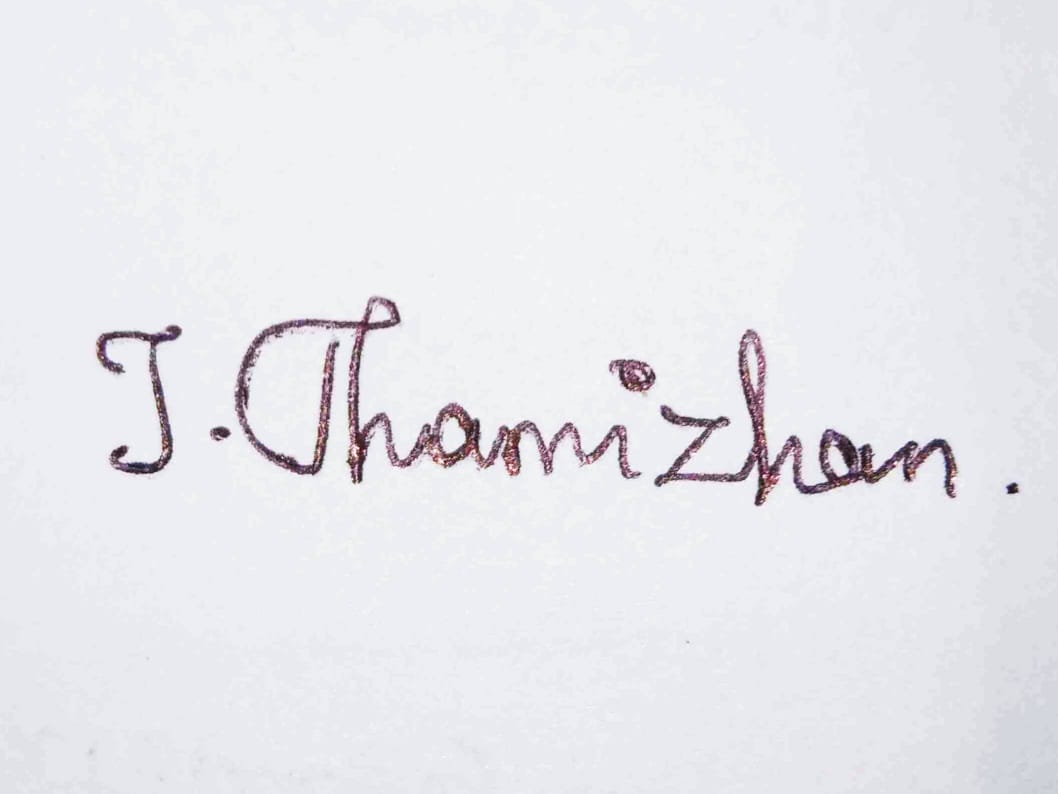 T. Thamizhan.